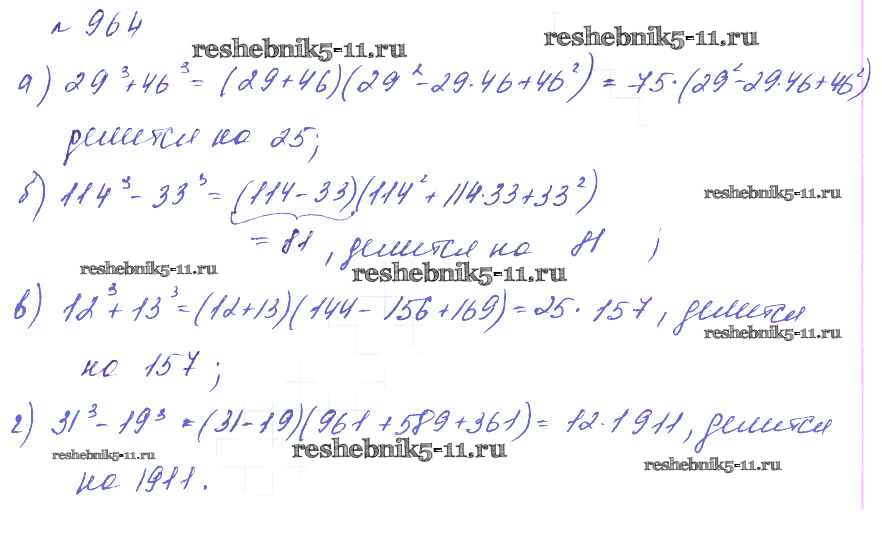 № 964
reshebnik5-11.ru
reshebnik5-11.ru
а) 29³+46³ = (29+46)(29²-29·46+46²) = 75·(29²-29·46+46²)
делится на 25;
б) 114³ - 33³ = (114-33)(114² + 114·33+33²)
reshebnik5-11.ru
= 81, делится на 81 ;
reshebnik5-11.ru
reshebnik5-11.ru
в) 12³ + 13³ = (12+13)(144 - 156 + 169) = 25 · 157, делится
reshebnik5-11.ru
на 157 ;
г) 31³ - 19³ = (31-19)(961 + 589 + 361) = 12 · 1911, делится
reshebnik5-11.ru
reshebnik5-11.ru
reshebnik5-11.ru
на 1911.